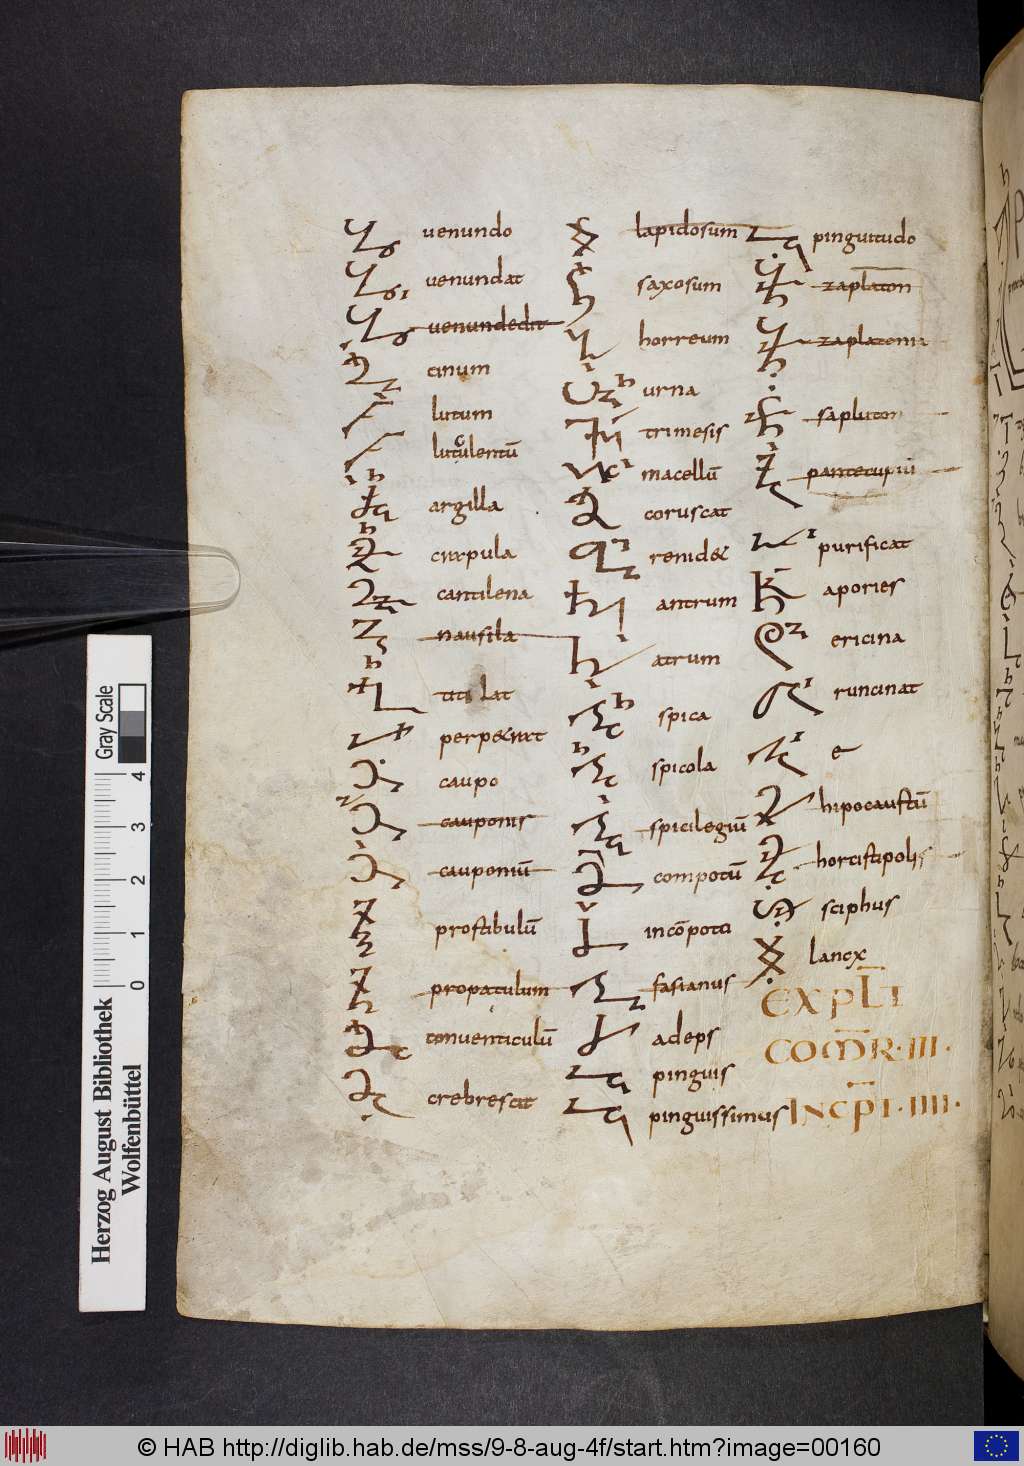 venundo
venundat
venundedit
cinum
lutum
lutulentū
argilla
crapula
cantilena
nausila
titilat
perpetrat
caupo
cauponis
cauponiū
prostabulū
propatulum
conventiculū
crebrescit
lapidosum
saxosum
horreum
urna
trimesis
macellū
coruscat
renidet
antrum
atrum
spica
spicola
spicilegiū
compotū
incōpota
fasianus
adeps
pinguis
pinguissimus
pinguitudo
zaplaton
zaplatonia
sapluton
purificat
apories
ericina
runcinat
e
hipocaustū
sciphus
lancx
EXPLI
COMR·III·
INCPI·IIII·
Gray Scale
4
3
2
1
0
Herzog August Bibliothek
Wolfenbüttel
© HAB http://diglib.hab.de/mss/9-8-aug-4f/start.htm?image=00160